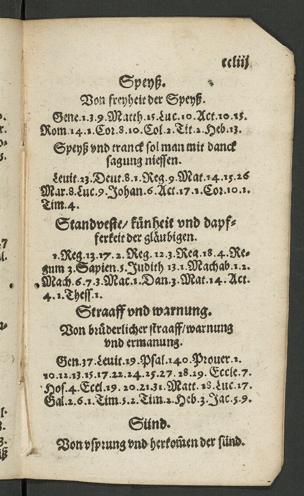 ccliij
Speyß.
Von freyheit der Speyß.
Gene.1.3.9. Matth.15. Luc.10. Act.10.15.
Rom.14.1. Cor.8.10. Col.2. Tit.2. Heb.13.
Speyß vnd tranck sol man mit danck
sagung niessen.
Leuit.23. Deut.8.1. Reg.9. Mat.14.15.26
Mar.8. Luc.9. Johan.6. Act.17.1. Cor.10.1.
Tim.4.
Standveste/ künheit vnd dapf-
ferkeit der gläubigen.
1. Reg.13.17.2. Reg.12.3. Reg.18.4. Re-
gum 3. Sapien.5. Judith 13.1. Machab.1.2.
Mach.6.7.3. Mac.1. Dan.3. Mat.14. Act.
4.1. Thess.1.
Straaff vnd warnung.
Von brüderlicher straaff/ warnung
vnd ermanung.
Gen.37. Leuit.19. Psal.140. Prouer.1.
10.12.13.15.17.22.24.25.27.18.29. Eccle.7.
Hos.4. Eccl.19.20.21.31. Matt.18. Luc.17.
Gal.2.6.1. Tim.5.2. Tim.2. Heb.3. Jac.5.9.
Sünd.
Von vsprung vnd herkom̃en der sünd.